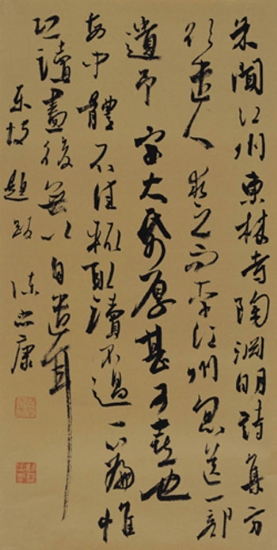 余聞江州東林寺陶淵明詩集方
欲遣人求之而李江州忽送一部
遺予字大紙厚甚可喜也
每中體不佳輒取讀不過一篇惟
恐讀盡後無以自遣耳
東坡題跋